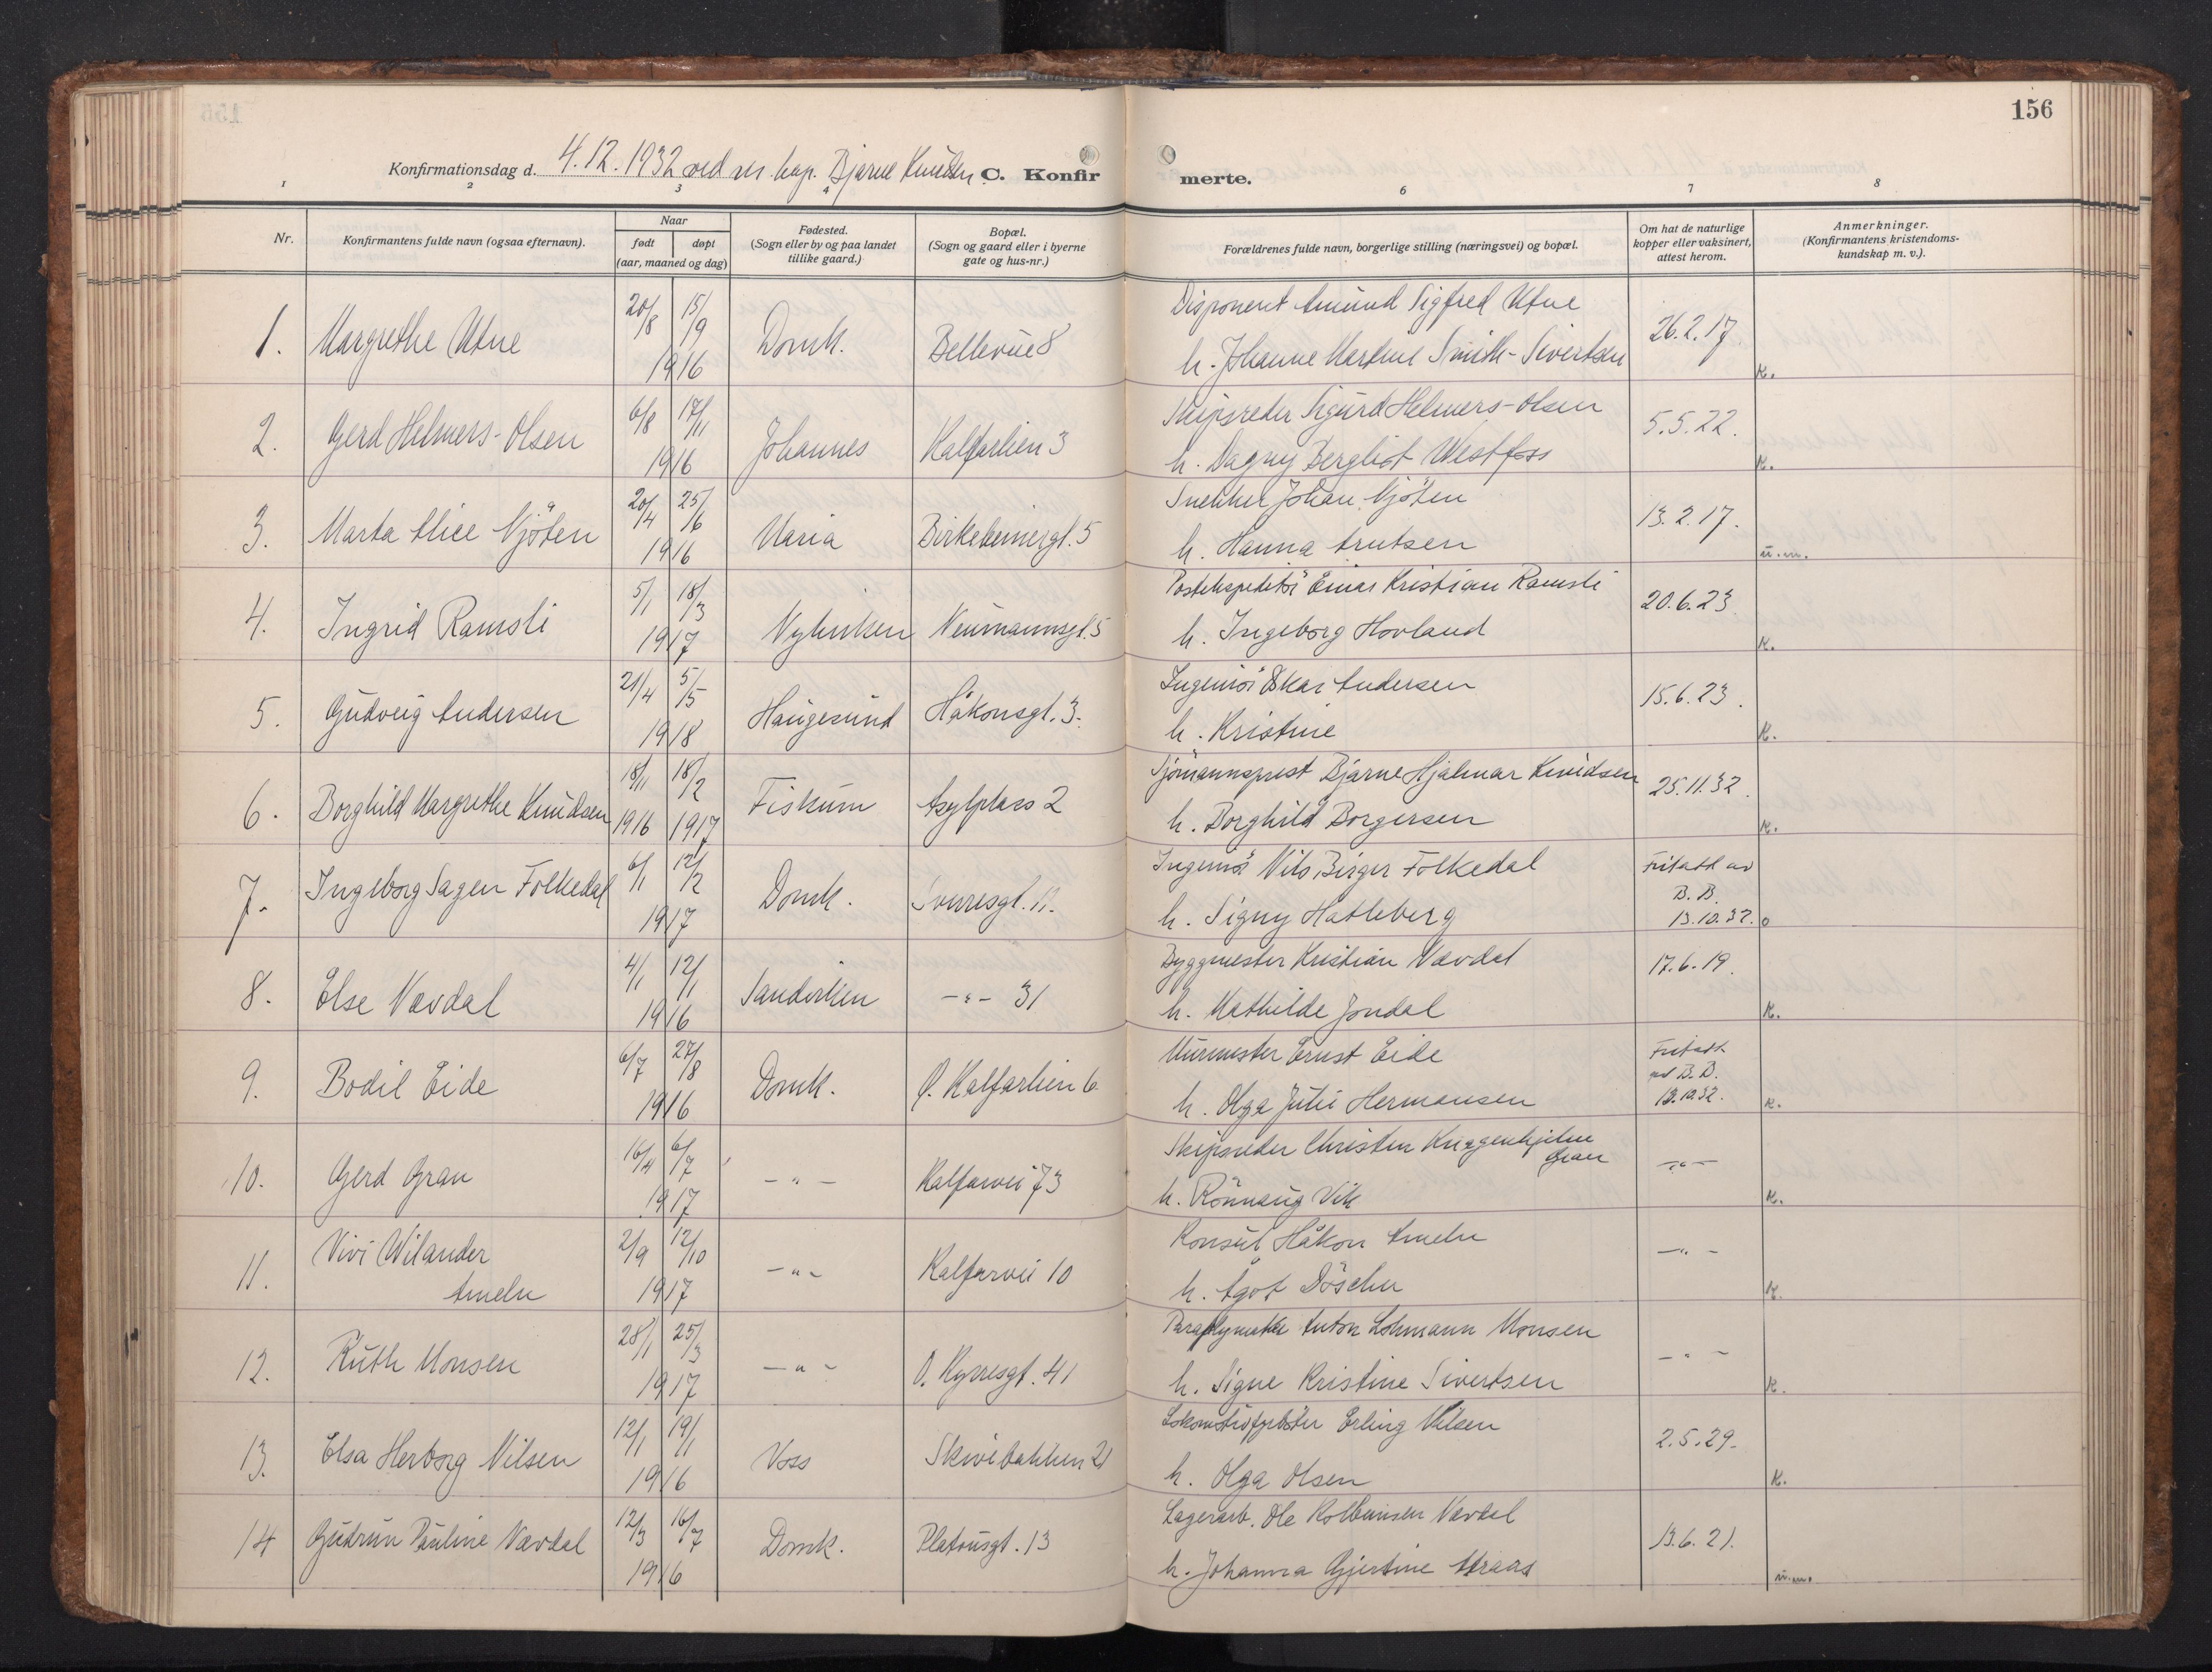 156
Konfirmationsdag d. 4.12.1932 ved res. kap. Bjarne Knudsen C. Konfirmerte.
1 2 3 4 6 7 8
Nr. Konfirmantens fulde navn (ogsaa efternavn). Naar født døpt (aar, maaned og dag) Fødested. (Sogn eller by og paa landet tillike gaard.) Bopæl. (Sogn og gaard eller i byerne gate og hus-nr.) Forældrenes fulde navn, borgerlige stilling (næringsvei) og bopæl. Om hat de naturlige kopper eller vaksinert, attest herom. Anmerkninger. (Konfirmantens kristendoms-kundskap m. v.).
1. Margrethe Utne 20/8 15/9 1916 Domk. Bellevue 8 Disponent Amund Sigfred Utne
h. Johanne Martine Smith-Sivertsen 26.2.17. K.
2. Gerd Helmers-Olsen 6/8 17/11 1916 Johannes Kalfarlien 3 Skipsreder Sigurd Helmers-Olsen
h. Dagny Bergliot Westfoss 5.5.22. K.
3. Marta Alice Njøten 20/4 25/6 1916 Maria Birkebeinergt. 5 Snekker Johan Njøten
h. Hanna Arntsen 13.2.17. u.m.
4. Ingrid Ramsli 5/1 18/3 1917 Nykirken Neumannsgt. 5 Postekspeditør Einar Kristian Ramsli
h. Ingeborg Hovland 20.6.23. K.
5. Gudveig Andersen 21/4 5/5 1918 Haugesund Håkonsgt. 3. Ingeniør Oskar Andersen
h. Kristine 15.6.23. K.
6. Borghild Margrethe Knudsen 18/11 1916 18/2 1917 Fiskum Asylplass 2 Sjømannsprest Bjarne Hjalmar Knudsen
h. Borghild Borgersen 25.11.32. K.
7. Ingeborg Sagen Folkedal 6/1 12/2 1917 Domk. Sverresgt. 11. Ingeniør Nils Birger Folkedal
h. Signy Hatleberg Fritatt av
B.B.
13.10.32. o
8. Else Nævdal 4/1 12/1 1916 Sandviken -"- 31 Byggmester Kristian Nævdal
h. Mathilde Jondal 17.6.19. K.
9. Bodil Eide 6/7 27/8 1916 Domk. Ø. Kalfarlien 6 Murmester Ernst Eide
h. Olga Julie Hermansen Fritatt
av B.B.
13.10.32. K.
10. Gerd Gran 16/4 6/7 1917 -"- Kalfarvei 73 Skipsreder Christen Knagenhjelm
Gran
h. Rønnaug Vik -"- K.
11. Vivi Wilander
Ameln 2/9 12/10 1917 -"- Kalfarvei 10 Konsul Håkon Ameln
h. Ågot Döscher -"- K.
12. Ruth Monsen 28/1 25/3 1917 -"- O. Kyrresgt. 41 Paraplymaker Anton Lohmann Monsen
h. Signe Kristine Sivertsen -"- K.
13. Elsa Herborg Nilsen 12/1 19/1 1916 Voss Skivebakken 21 Lokomotivfyrbøter Erling Nilsen
h. Olga Olsen 2.5.29. K.
14 Gudrun Pauline Nævdal 12/3 16/7 1916 Domk. Platousgt. 13 Lagerarb. Ole Kolbeinsen Nævdal
h. Johanna Gjertine 13.6.21. u.m.